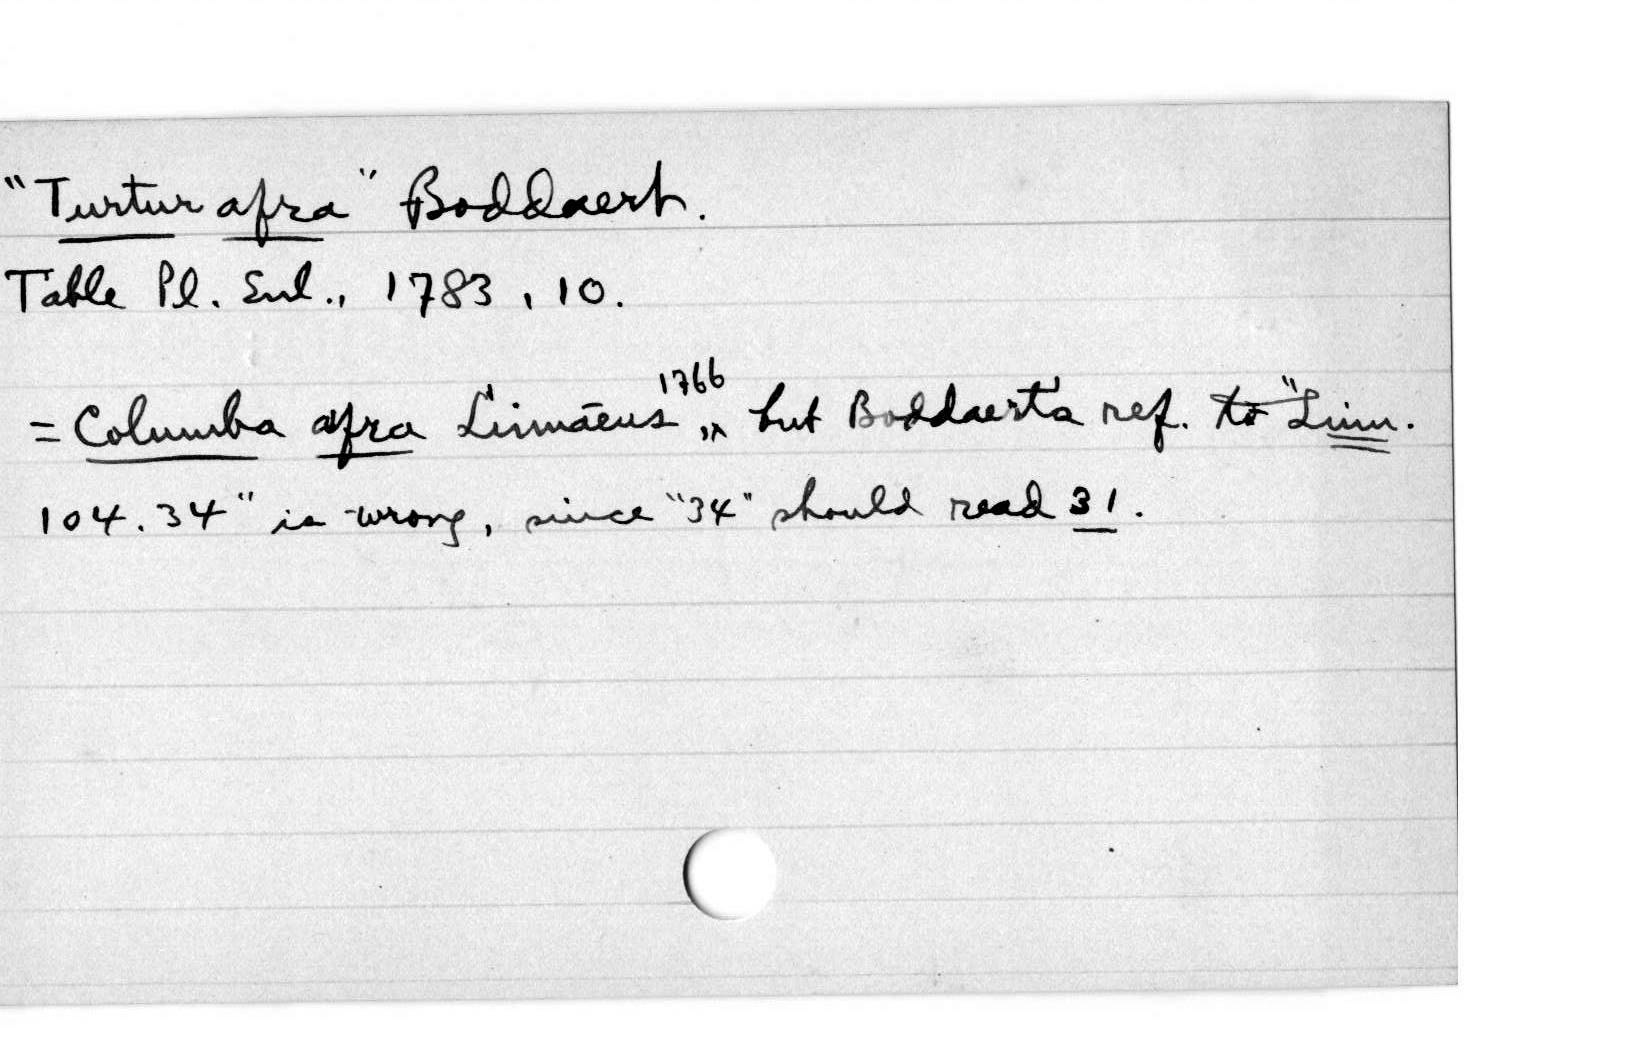 "Turtur afra" Boddaert.
Table Pl. Enl., 1783, 10.
= Columba afra Linnaeus 1766, but Boddaert's ref. to "Linn.
104.34" is wrong, since "34" should read 31.